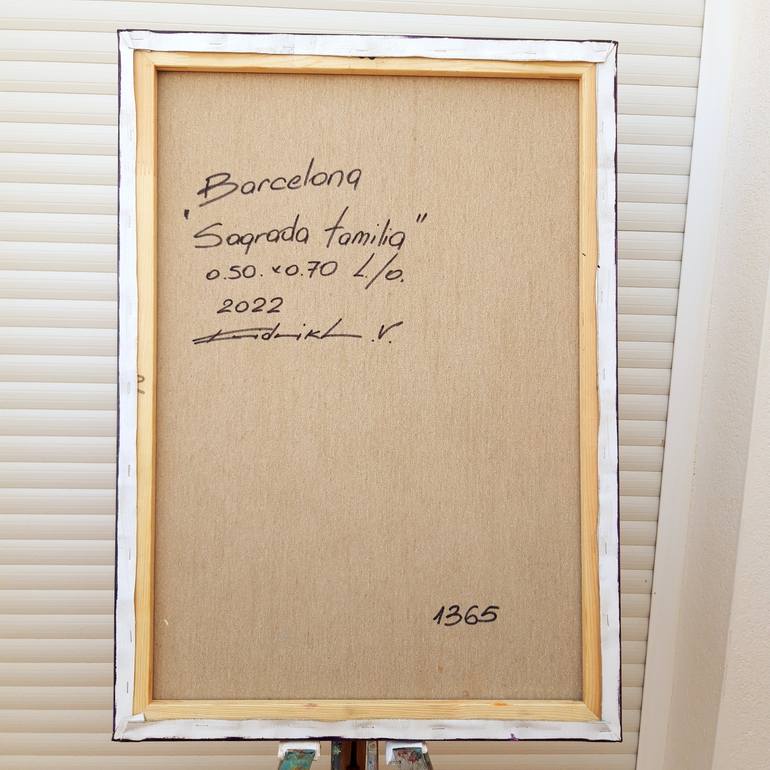 Barcelona
"Sagrada familia"
0.50. x 0.70 L/o.
2022
V.
1365